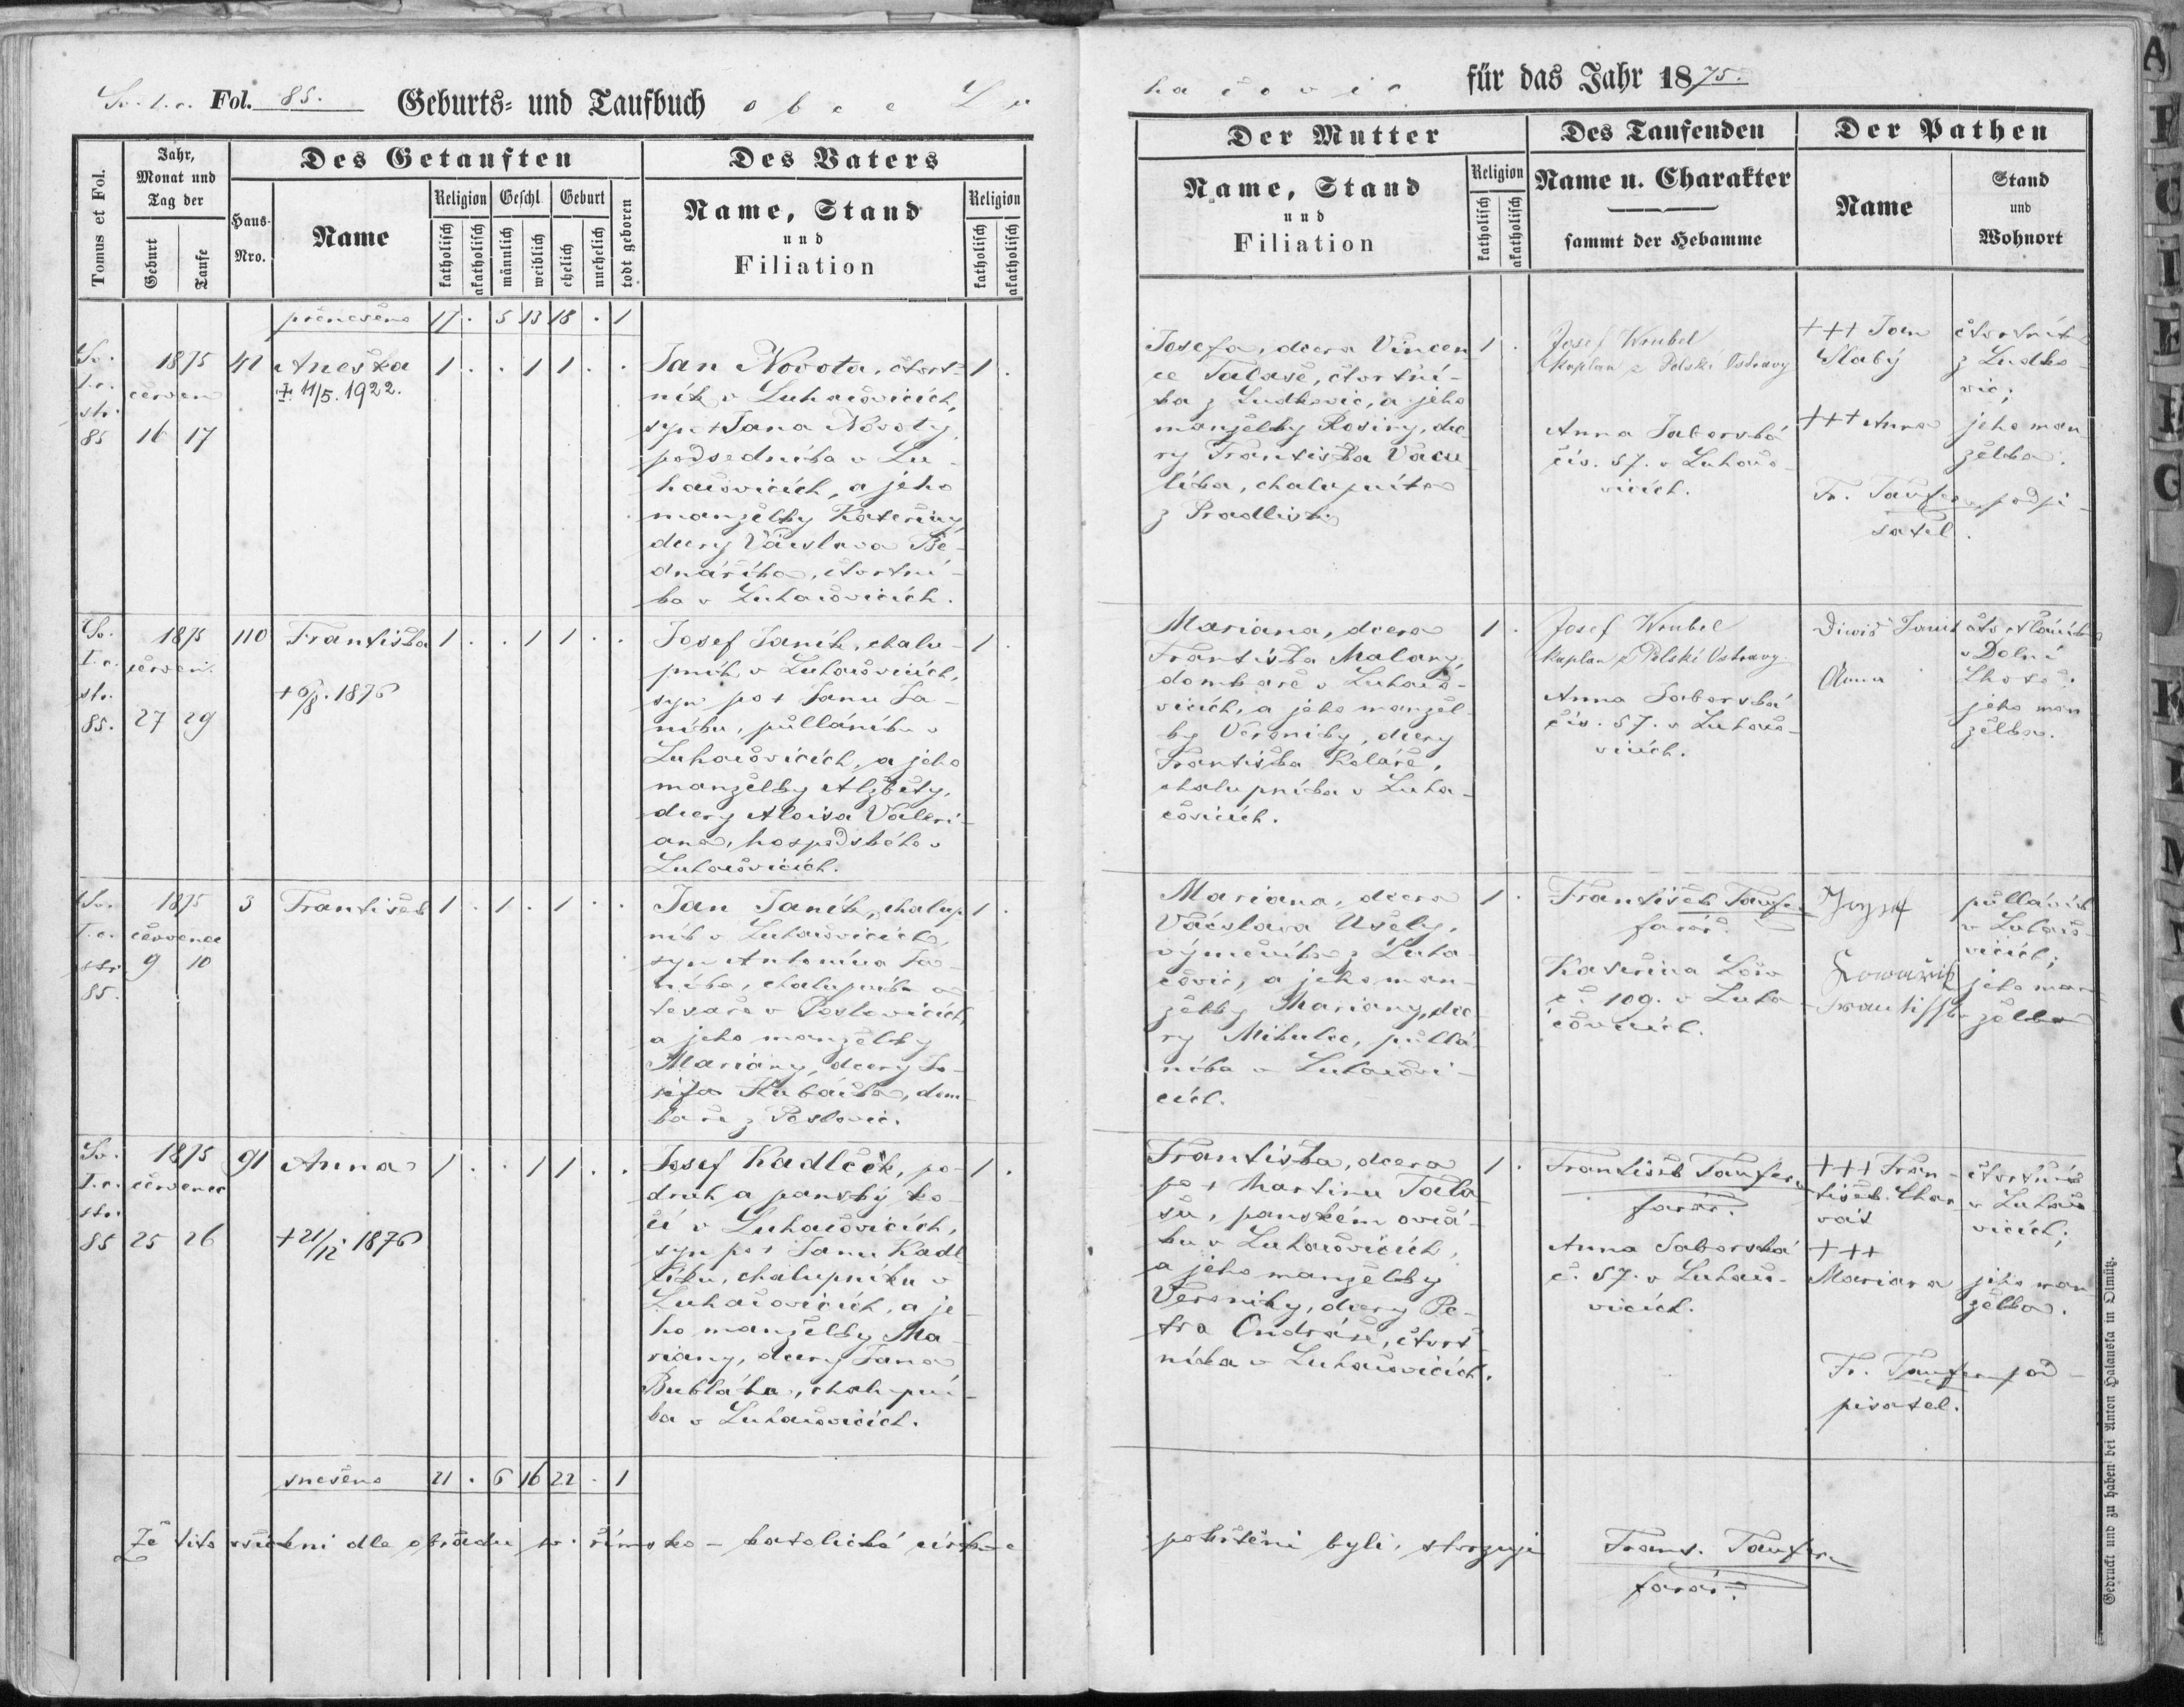 Sv. I. c. Fol. 85. Geburts- und Taufbuch obce Lu
hačovic für das Jahr 1875.
Tomus et Fol.
Jahr,
Monat und
Tag der
Geburt
Taufe
Haus-
Nro.
Des Getauften
Name
Religion
katholisch
akatholisch
Geschl.
männlich
weiblich
Geburt
ehelich
unehelich
todt geboren
Des Vaters
Name, Stand
und
Filiation
Religion
katholisch
akatholisch
Der Mutter
Name, Stand
und
Filiation
Religion
katholisch
akatholisch
Des Taufenden
Name u. Charakter
sammt der Hebamme
Der Pathen
Name
Stand
und
Wohnort
přenešeno 17 . 5 13 18 . 1
Sv.
I.c.
str.
85
1875
červen
16 17
41
Anežka
+ 11/5. 1922.
1 . . 1 1 . .
Jan Novota, čtvrt-
ník v Luhačovicích,
syn + Jana Novoty,
podsedníka v Lu-
hačovicích, a jeho
manželky Kateřiny,
dcery Václava Be-
dnaříka, čtvrtní-
ka v Luhačovicích.
1 .
Josefa, dcera Vincen
ce Talaše, čtvrtní-
ka z Ludkovic, a jeho
manželky Rosiny, dce
ry Františka Vacu
líka, chalupníka
z Pradliska
1 .
Josef Wrubel
kaplan z Polské Ostravy
Anna Záborská
čís. 57. v Luhačo-
vicích.
+++ Jan
Slabý
+++ Anna
Fr. Taufer, podpi-
satel.
čtvrtník
z Ludko-
vic;
jeho man-
želka.
Sv.
I.c.
str.
85.
1875
červen.
27 29
110
Františka
+ 6/8. 1876
1 . . 1 1 . .
Josef Janík, chalu-
pník v Luhačovicích,
syn po + Janu Ja-
níku, půlláníku v
Luhačovicích, a jeho
manželky Alžběty,
dcery Aloisa Valeri-
ana, hospodského v
Luhačovicích.
1 .
Mariana, dcera
Františka Malany,
domkaře v Luhačo-
vicích, a jeho manžel-
ky Veroniky, dcery
Františka Koláře,
chalupníka v Luha-
čovicích.
1 .
Josef Wrubel
kaplan z Polské Ostravy
Anna Záborská
čís. 57. v Luhačo-
vicích.
Anna
v Dolní
Lhotě;
jeho man
želka.
Sv.
I.c.
str.
85.
1875
červenec
9 10
3
František
1 . 1 . 1 . .
Jan Janík, chalup
ník v Luhačovicích,
syn Antonína Ja-
níka, chalupníka a
tesaře v Poslovicích,
a jeho manželky
Mariány, dcery Jo-
sefa Kubáčka, dom
kaře z Poslovic.
1 .
Mariana, dcera
Václava Usely,
výměníka z Luha-
čovic, a jeho man-
želky Mariany, dce-
ry Mikulce, půllá-
níka v Luhačovi-
cích.
1 .
František Taufer
farář.
Kateřina
č. 109. v Luha-
čovicích.
Jozef
půlláník
v Luhačo-
vicích;
jeho man-
želka
Sv.
I.c.
str.
85
1875
červenec
25 26
91
Anna
+ 21/12. 1876
1 . . 1 1 . .
Josef Kadlček, po-
druh a panský ko-
čí v Luhačovicích,
syn po + Janu Kadl
číku, chalupníku v
Luhačovicích, a je-
ho manželky Ma-
riany, dcery Jana
Bubláka, chalupní-
ka v Luhačovicích.
1 .
Františka, dcera
po + Martinu Tala
šu, panském ovčá-
ku v Luhačovicích,
a jeho manželky
Veroniky, dcery Pe-
tra Ondráše, čtvrt
níka v Luhačovicích.
1 .
František Taufer
farář.
Anna Záborská
č. 57. v Luhačo-
vicích.
+++ Fran-
tišek Char
vát
+++
Mariana
Fr. Taufer pod-
pisatel.
čtvrtník
v Luhačo
vicích;
jeho man
želka.
snešeno 21 . 6 16 22 . 1
Že tito všichni dle obřadu sv. římsko-katolické církve
pokřtěni byli, stvrzuje Frant. Taufer
farář.
Gedruckt und zu haben bei Anton Halauska in Olmütz.